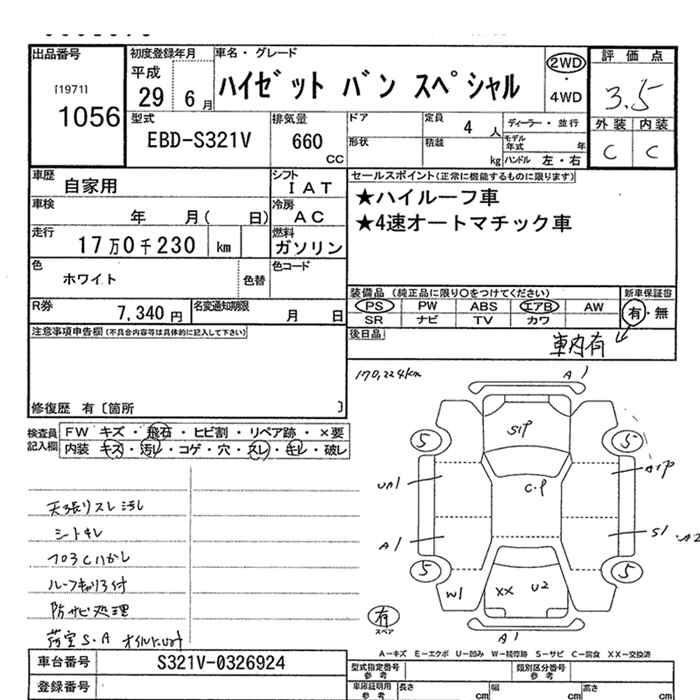 出品番号
[1971]
1056
初度登録年月
平成
29 6月
車名・グレード
ハイゼット バン スペシャル
2WD
・
4WD
評価点
3.5
外装 内装
C C
型式
EBD-S321V
排気量
660
CC
ドア
形状
定員
4 人
積載
kg
ディーラー・並行
モデル年式 年
ハンドル 左・右
車歴
自家用
シフト
IAT
車検
年 月( 日)
冷房
AC
走行
17万0千230 km
燃料
ガソリン
色
ホワイト
色替
色コード
R券
7,340円
名変通知期限
月 日
セールスポイント(正常に機能するものに限ります)
★ハイルーフ車
★4速オートマチック車
装備品 (純正品に限り○をつけてください)
PS PW ABS エアB AW
SR ナビ TV カワ
新車保証書
有・無
後日品
車内有
注意事項申告欄(不具合内容等は具体的に記入して下さい)
修復歴 有〔箇所 〕
検査員記入欄
FW キズ・飛石・ヒビ割・リペア跡・×要
内装 キズ・汚レ・コゲ・穴・スレ・キレ・破レ
170,224km
A1
S1P
C.P
5 5
A1
S1
A2
5 5
W1
XX U2
有
スペア
A1
天張りスレ汚レ
シートキレ
ルーフキャリア付
防サビ処理
荷室S.A
A-キズ E-エクボ U-凹み W-補修跡 S-サビ C-腐食 XX-交換済
車台番号
S321V-0326924
登録番号
型式指定番号
参考
類別区分番号
参考
車庫証明用
参考
長さ cm
幅 cm
高さ cm